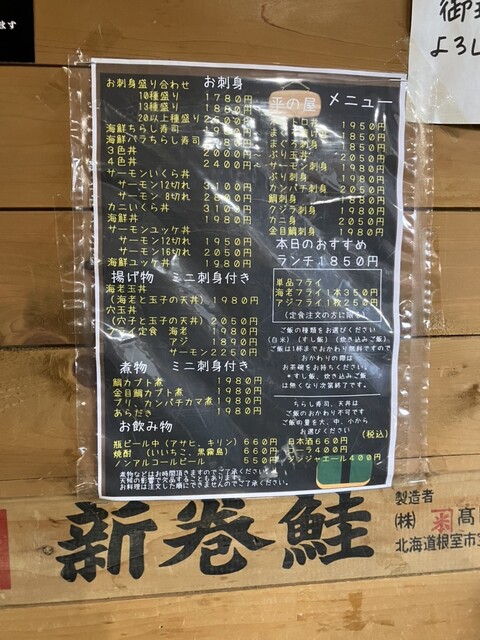 ます
御
よろし
平の屋 メニュー
お刺身盛り合わせ お刺身
10種盛り 1780円
13種盛り 1880円
20以上種盛り 2500円
海鮮ちらし寿司
海鮮バラちらし寿司
3色丼 2000円～
4色丼 2400円～
サーモンいくら丼
サーモン12切れ 3100円
サーモン8切れ 2800円
カニいくら丼 3100円
海鮮丼 1980円
サーモンユッケ丼
サーモン12切れ 1950円
サーモン16切れ 2050円
海鮮ユッケ丼 1980円
揚げ物 ミニ刺身付き
海老玉丼
(海老と玉子の天丼) 1980円
穴玉丼
(穴子と玉子の天丼) 2050円
フライ定食 海老 1980円
アジ 1890円
サーモン 2250円
煮物 ミニ刺身付き
鯛カブト煮 1980円
金目鯛カブト煮 1980円
ブリ、カンパチカマ煮 1980円
あらだき 1980円
お飲み物
瓶ビール中 (アサヒ、キリン) 660円
焼酎 (いいちこ、黒霧島) 660円
ノンアルコールビール 550円
1950円
1850円
まぐろ刺身 1950円
ぶり玉丼 2050円
サーモン刺身
ぶり刺身 1980円
カンパチ刺身 2050円
鯛刺身 1880円
クジラ刺身 1980円
カニ身 2050円
金目鯛刺身 1980円
本日のおすすめ
ランチ1850円
単品フライ
海老フライ1本350円
アジフライ1枚250円
(定食注文の方に限る)
ご飯の種類をお選びください
(白米) (すし飯) (炊き込みご飯)
ご飯は1杯までおかわり無料ですので
おかわりの際は
お茶碗をお持ちください。
*すし飯、炊き込みご飯
は無くなり次第終了です。
ちらし寿司、天丼は
ご飯のおかわり不可です
ご飯の量を大、中、小から
お選びください
(税込)
日本酒660円
コーラ400円
ジンジャエール400円
煮物などはお時間頂きますのでご了承ください
天候の影響で欠品することもあります。
お料理は注文した順にできませんのでご了承ください。
新巻鮭
製造者
(株) 髙
北海道根室市